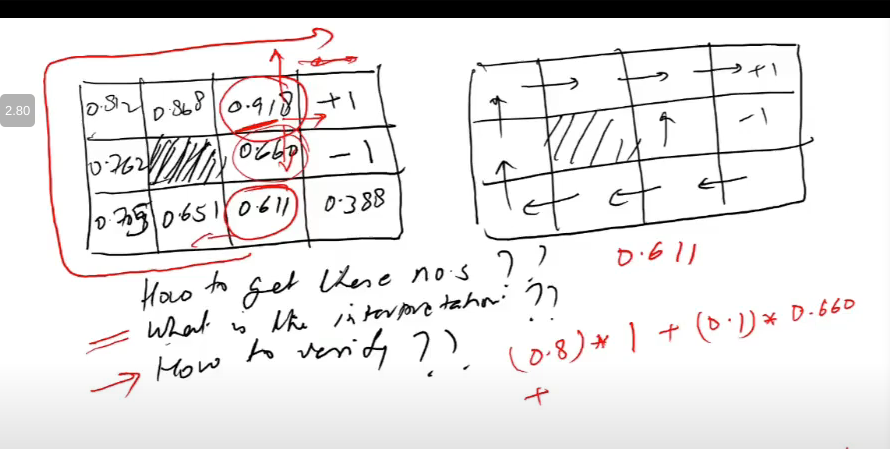 2.80
0.812 0.868 0.918 +1
0.762 0.660 -1
0.705 0.651 0.611 0.388
+1
-1
0.611
How to get these no.s ??
What is the interpretation ??
How to verify ??
(0.8) * 1 + (0.1) * 0.660
+